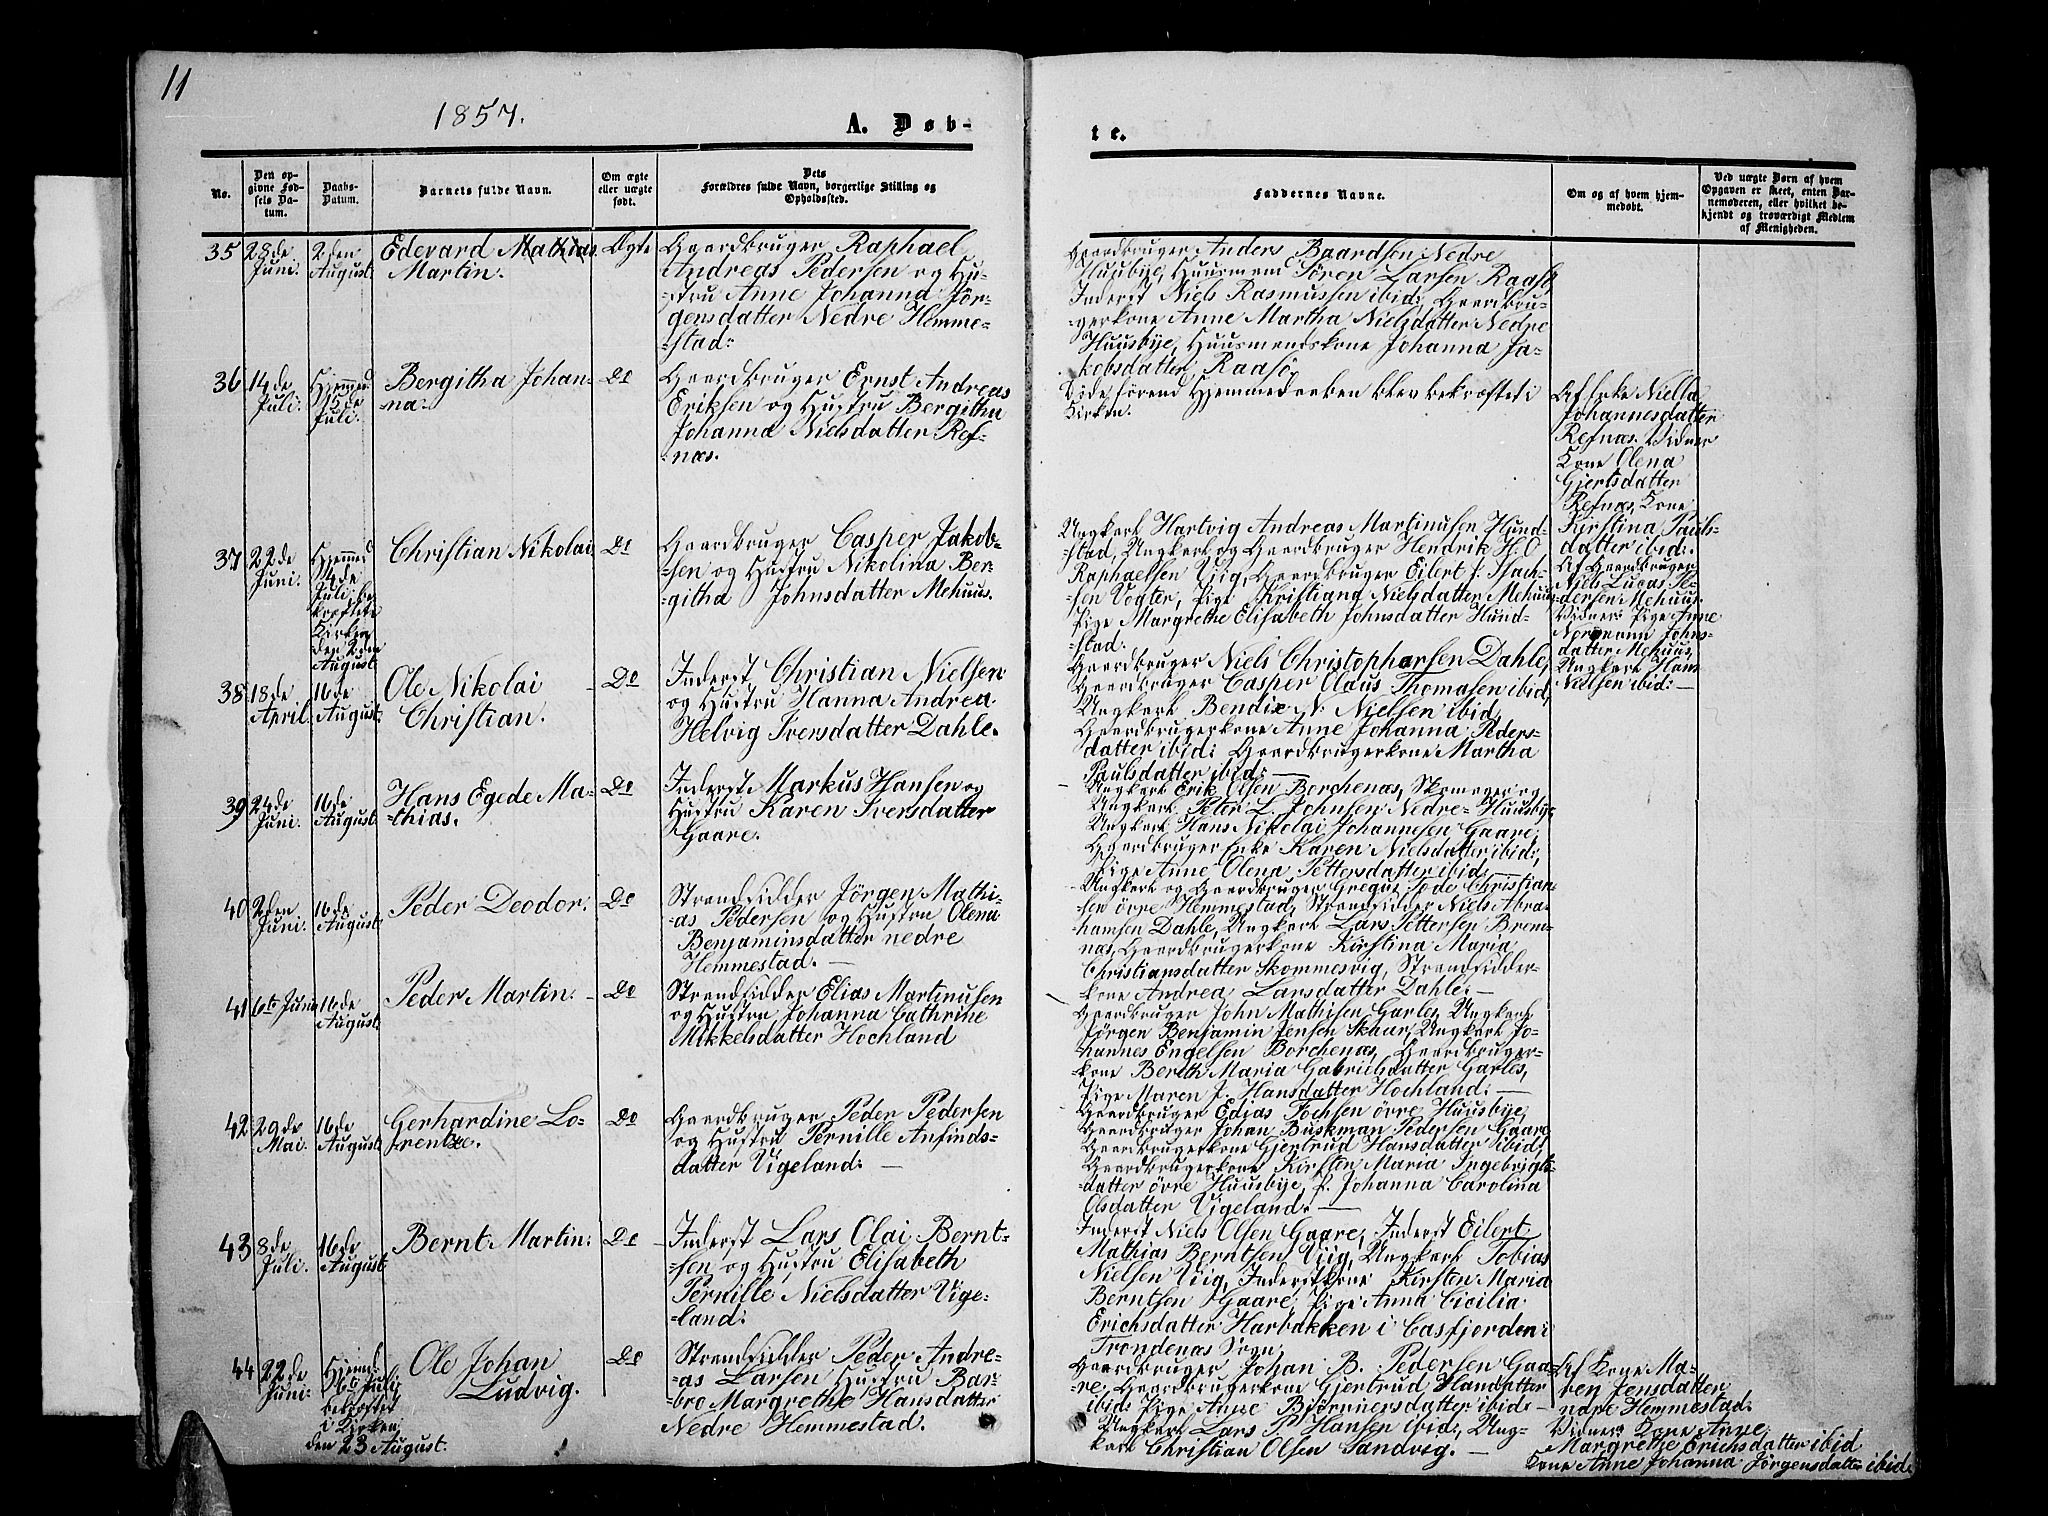 11
1857.
A. Døb-
te.
No.
Den op-
givne Fød-
sels Da-
tum.
Daabs-
Datum.
Barnets fulde Navn.
Om ægte
eller uægte
født.
Dets
Forældres fulde Navn, borgerlige Stilling og
Opholdssted.
Faddernes Navne.
Om og af hvem hjem-
medøbt.
Ved uægte Børn af hvem
Opgaven er skeet, enten Bar-
nemoderen, eller hvilket be-
kjendt og troværdigt Medlem
af Menigheden.
35
28de
Juni.
2den
August.
Edevard Mathias
Martin.
Ægte
Gaardbruger Raphael
Andreas Pedersen og Hu-
-stru Anne Johanna Jør-
gensdatter Nedre Hemme-
-stad:
Gaardbruger Anders Baardsen Nedre
Huusbye, Huusmend Sören Larsen Raasö,
Inderst Niels Rasmussen ibid:, Gaardbru-
gerkone Anne Martha Nielsdatter Nedre
Huusbye, Huusmendskone Johanna Ja-
kobsdatter, Raasö.
36
14de
Juli.
Hjemmed.
15de
Juli.
Bergitha Johan-
-na.
Do
Gaardbruger Ernst Andreas
Eriksen og Hustru Bergitha
Johanna Nielsdatter Ref-
-næs.
Döde förend Hjemmedaaben blev bekræftet i
Kirken.
Af Enke Niella
Johannesdatter
Refnæs. Vidner
Kone Olena
Gjertsdatter
Refnæs, Kone
Kirstina Pauls-
datter ibid:
37
22de
Juni.
Hjemmed
4de
Juli, be
kræftet i
Kirken
den 2den
August.
Christian Nikolai
Do
Gaardbruger Casper Jakob-
-sen og Hustru Nikolina Ber-
-githa Johnsdatter Mehuus.
Ungkarl Hartvig Andreas Martinusen Hund-
-stad, Ungkarl og Gaardbruger Hendrik H. O
Raphaelsen Viig, Gaardbruger Eilert J. Isach-
sen Vogter, Pige Kristiana Nielsdatter Mehuus
Pige Margrethe Elisabeth Johnsdatter Hund-
-stad:
Af Gaardbruger
Niels Lucas Pe-
dersen Mehuus.
Vidner: Pige Anne
Normann Johns-
datter Mehuus,
Ungkarl Hans
Nielsen ibid: —
38.
18de
April.
16de
August.
Ole Nikolai
Christian.
Do
Inderst Christian Nielsen
og Hustru Hanna Andrea
Helvig Iversdatter Dahle.
Gaardbruger Niels Christophersen Dahle,
Gaardbruger Casper Claus Thomasen ibid,
Ungkarl Bendix N. Nielsen ibid,
Gaardbrugerkone Anne Johanna Peders-
datter ibid: Gaardbrugerkone Martha
Paulsdatter ibid: —
39
24de
Juni.
16de
August.
Hans Egede Ma-
-thias.
Do
Inderst Markus Hansen og
Hustru Karen Iversdatter
Gaare.
Ungkarl Erik Olsen Borchenæs, Skomager og
Ungkarl Peter L. Johnsen Nedre Huusbye
Ungkarl Hans Nikolai Johannesen Gaare,
Gaardbruger Enke Karen Nielsdatter ibid:,
Pige Anne Olena Pettersdatter ibid: —
40
2den
Juni.
16de
August.
Peder Deodor.
Do
Strandsidder Jörgen Mathi-
-as Pedersen og Hustru Olena
Benjaminsdatter nedre
Hemmestad. —
Ungkarl og Gaardbruger Gregus Tode Christian-
sen övre Hemmestad, Strandsidder Niels Abra-
hamsen Dahle, Ungkarl Lars Pettersen Brem-
næs, Gaardbrugerkone Kirstina Maria
Christiansdatter Skommesvig, Strandsidder-
kone Andrea Larsdatter Dahle. —
41
6te Juni
16de
August.
Peder Martin.
Do
Strandsidder Elias Martinusen
og Hustru Johanna Cathrine
Mikkelsdatter Hochland
Gaardbruger John Mathisen Garles, Ungkarl
Jörgen Benjamin Jensen Skhar, Ungkarl Jo-
-hannes Engelsen Borchenæs, Gaardbruger-
kone Bereth Maria Gabrielsdatter Garles,
Pige Maren J. Hansdatter Hochland: —
42
29de
Mai.
16de
August.
Gerhardine Lo-
-rentze.
Do
Gaardbruger Peder Pedersen
og Hustru Pernille Anfinds-
datter Vigeland: —
Gaardbruger Edias Tochsen övre Huusbye,
Gaardbruger Johan Buskman Pedersen Gaare,
Gaardbrugerkone Gjertrud Hansdatter ibid,
Gaardbrugerkone Kirsten Maria Ingebrigts-
datter övre Huusbye, P. Johanna Carolina
Olsdatter Vigeland. —
43
8de
Juli.
16de
August.
Bernt Martin:
Do
Inderst Lars Olai Bernt-
-sen og Hustru Elisabeth
Pernille Nielsdatter Vige-
-land:
Inderst Niels Olsen Gaare, Inderst Eilert
Mathias Berntsen Viig, Ungkarl Tobias
Nielsen Viig, Inderstkone Kirsten Maria
Berntsen Gaare, Pige Anna Cicilia
Erichsdatter Harbakken i Casfjorden i
Trondenæs Sogn.
44
22de
Juni.
Hjemmed.
6te Juli,
bekræftet
i Kirken
den 23 August.
Ole Johan
Ludvig.
Do
Strandsidder Peder Andre-
-as Larsen Hustru Bar-
bro Margrethe Hansdatter
Nedre Hemmestad.
Gaardbruger Johan B. Pedersen Gaa-
re, Gaardbrugerkone Gjertrud Hansdatter
ibid: Pige Anne Björnersdatter ibid: —
Ungkarl Lars P. Hansen ibid:, Ung-
karl Christian Olsen Sandvig. —
Af Kone Ma-
ren Jensdatter
nedre Hemmestad.
Vidner: Kone Anne
Margrethe Erichsdatter ibid
Kone Anne Johanna Jörgensdatter ibid.